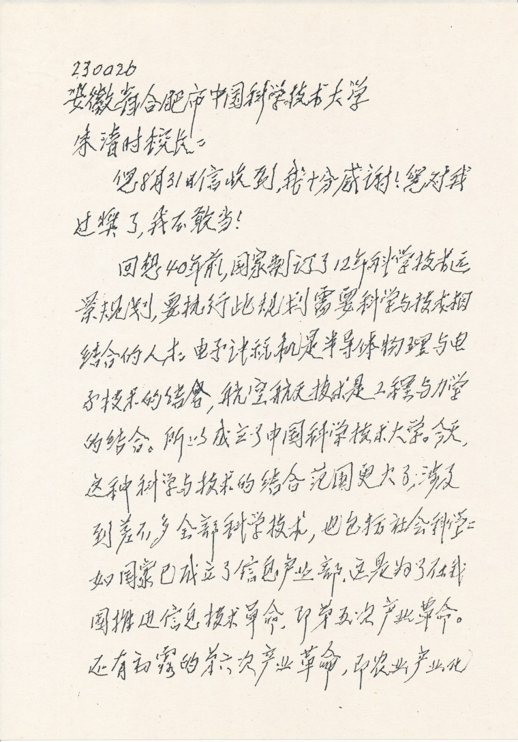 230026
安徽省合肥市中国科学技术大学
朱清时校长：
您8月31日信收到，我十分感谢！您对我
过奖了，我不敢当！
回想40年前，国家制订了12年科学技术远
景规划，要执行此规划需要科学与技术相
结合的人才。电子计算机是半导体物理与电
子技术的结合，航空航天技术是工程与力学
的结合。所以成立了中国科学技术大学。今天，
这种科学与技术的结合范围更大了，涉及
到差不多全部科学技术，也包括社会科学：
如国家已成立了信息产业部，这是为了在我
国推进信息技术革命，即第五次产业革命。
还有初露的第六次产业革命，即农业产业化